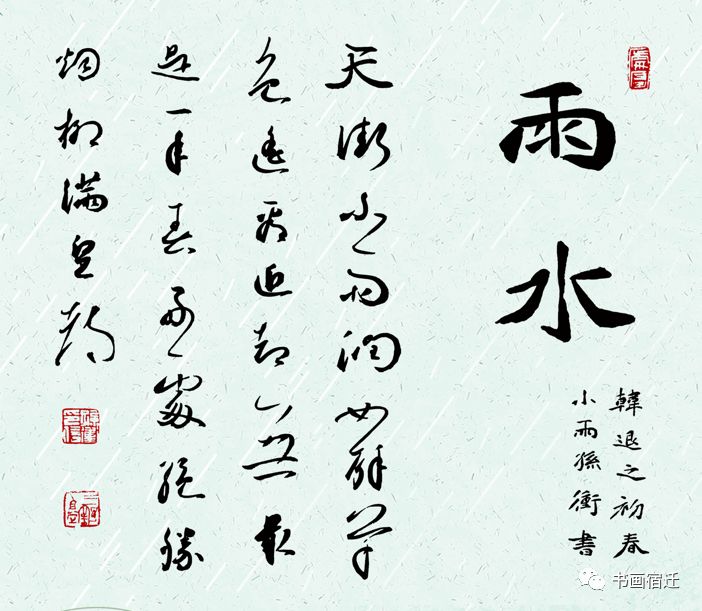 雨水
韓退之初春
小雨孫衝書
天街小雨潤如酥草
色遙看近却無最
是一年春好處絕勝
烟柳滿皇都
书画宿迁